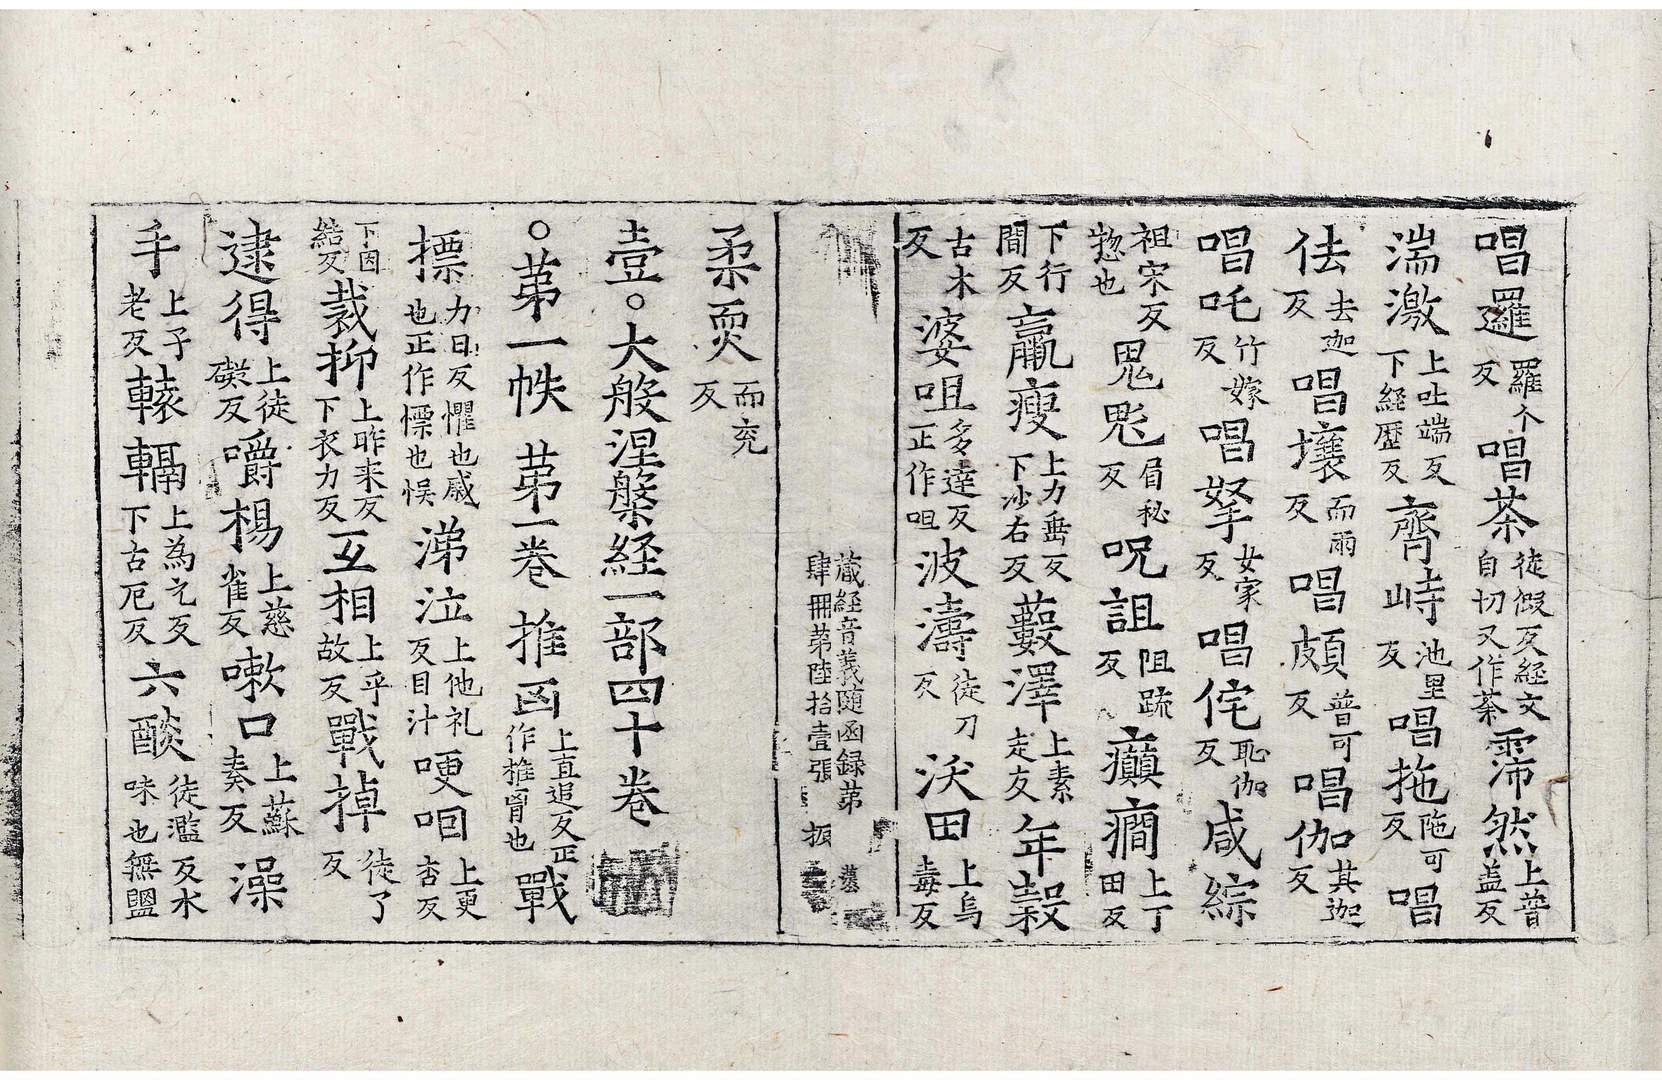 唱邏羅个反唱荼徒假反経文自切又作荼霈然上普盖反
湍激上吐端反下経歴反齊峙池里反唱拖陁可反唱
佉去迦反唱壤而雨反唱頗普可反唱伽其迦反
唱吒竹嫁反唱拏女家反唱侘恥伽反咸綜
祖宋反惣也鬼魁眉秘反呪詛阻䟽反癲癎上丁田反
下行間反羸瘦上力垂反下沙右反藪澤上素走反年穀
古木反婆咀多達反正作呾波濤徒刀反沃田上烏毒反
蔵経音義随函録第
肆冊第陸拾壹張 振
柔耎而兖反
壹○大般涅槃経一部四十卷
○第一帙 第一卷 推凾上直追反正作椎㐫也戰
慓力日反懼也慼也正作慄也悞涕泣上他礼反目汁哽咽上更杏反
下因結反裁抑上昨来反下衣力反互相上乎故反戰掉徒了反
逮得上徒礙反嚼楊上慈雀反嗽口上蘇奏反澡
手上子老反轅轎上為元反下古厄反六醶徒濫反水味也無鹽